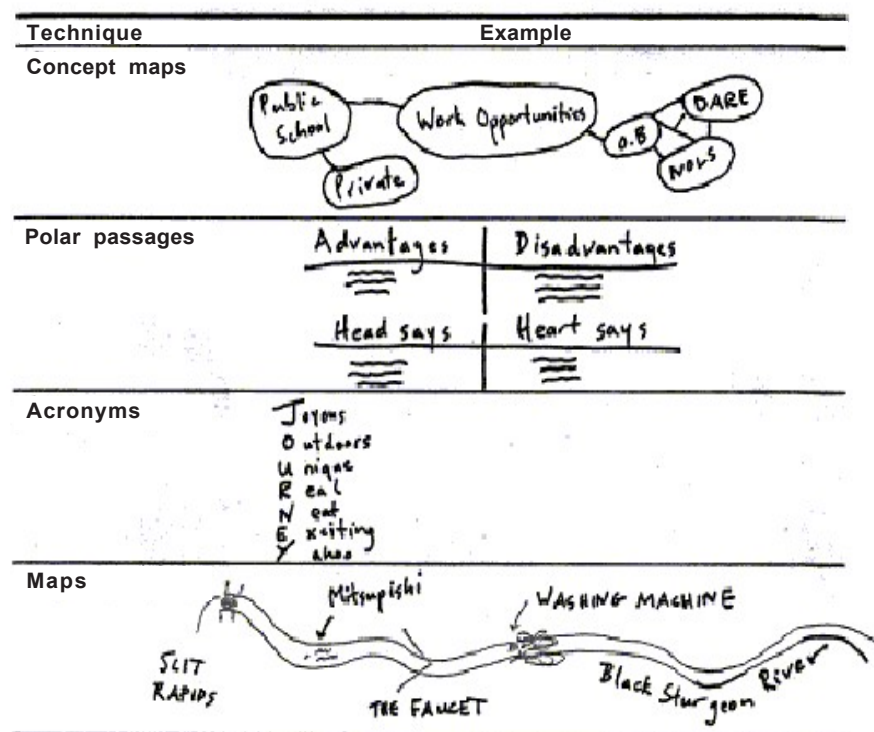 Technique Example
Concept maps
Public School
Work Opportunities
O.B
D.ARE
NOLS
Private
Polar passages
Advantages Disadvantages
Head says Heart says
Acronyms
Joyous
Outdoors
Unique
Real
Neat
Exciting
Yahoo
Maps
Mitsupishi
WASHING MACHINE
SLIT
RAPIDS
THE FAUCET
Black Sturgeon River